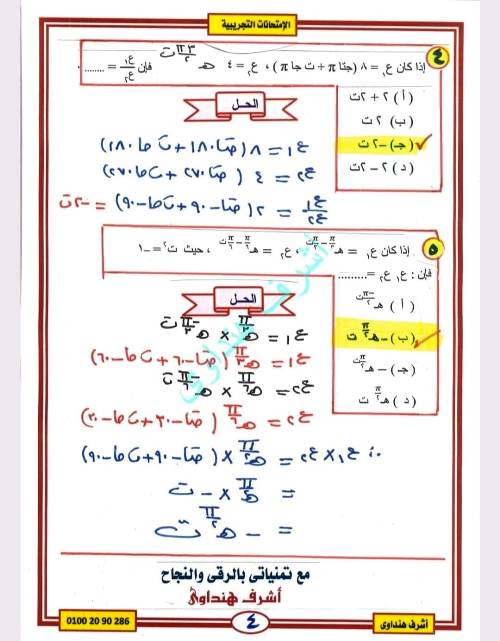 الإمتحانات التجريبية
٤
إذا كان ع١ = ٨ (جتا π + ت جا π) ، ع٢ = ٤ هـ^(٣π/٢ ت) فإن ع١/ع٢ = ........
(أ) ٢ + ٢ ت
(ب) ٢ ت
(جـ) −٢ ت ✓
(د) ٢ − ٢ ت
الحـل
ع١ = ٨ (جتا ١٨٠ + ت جا ١٨٠)
ع٢ = ٤ (جتا ٢٧٠ + ت جا ٢٧٠)
ع١/ع٢ = ٢ (جتا −٩٠ + ت جا −٩٠) = −٢ ت
٥
إذا كان ع١ = هـ^(π/٣ − π/٣ ت) ، ع٢ = هـ^(π/٦ − π/٦ ت) ، حيث ت٢ = −١
فإن : ع١ ع٢ = ..........
(أ) هـ^(−π/٢ ت)
(ب) − هـ^(π/٢) ت ✓
(جـ) − هـ^(−π/٢ ت)
(د) هـ^(π/٢) ت
الحـل
ع١ = هـ^(π/٣) × هـ^(−π/٣ ت)
ع١ = هـ^(π/٣) (جتا −٦٠ + ت جا −٦٠)
ع٢ = هـ^(π/٦) × هـ^(−π/٦ ت)
ع٢ = هـ^(π/٦) (جتا −٣٠ + ت جا −٣٠)
∴ ع١ × ع٢ = هـ^(π/٢) × (جتا −٩٠ + ت جا −٩٠)
= هـ^(π/٢) × − ت
= − هـ^(π/٢) ت
أشرف هنداوى
مع تمنياتى بالرقى والنجاح
أشرف هنداوى
أشرف هنداوى
٤
0100 20 90 286